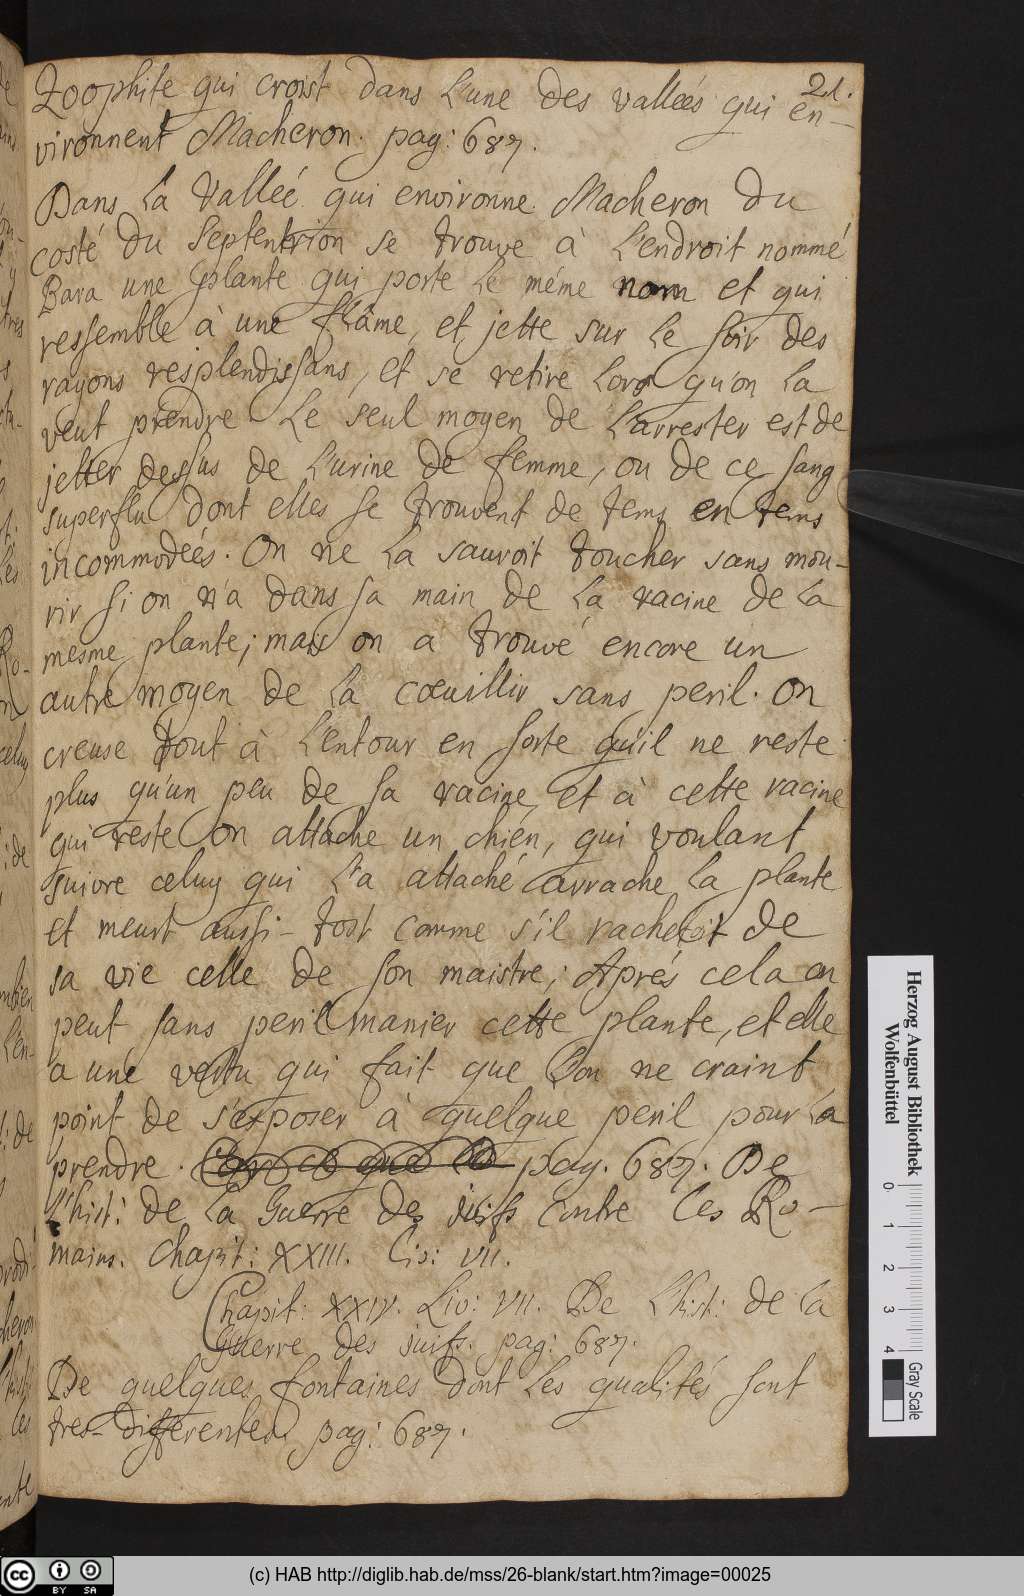 21.
Zoophite qui croist dans l'une des valleés qui en-
vironnent Macheron. pag: 687.
Dans la valleé qui environne Macheron du
costé du Septentrion se trouve à l'endroit nommé
Bara une plante qui porte le méme nom et qui
ressemble à une flâme, et jette sur le soir des
rayons resplendissans, et se retire lors qu'on la
veut prendre. Le seul moyen de l'arrester est de
jetter dessus de l'urine de femme, ou de ce sang
superflu dont elles se trouvent de tems en tems
incommodeés. On ne la sauroit toucher sans mou-
rir si on n'a dans sa main de la racine de la
mesme plante; mais on a trouvé encore un
autre moyen de la cœuillir sans peril. On
creuse tout à l'entour en sorte qu'il ne reste
plus qu'un peu de sa racine, et à cette racine
qui reste on attache un chien, qui voulant
suivre celuy qui l'a attaché arrache la plante
et meurt aussi-tost comme s'il rachetoit de
sa vie celle de son maistre; Aprés cela on
peut sans peril manier cette plante, et elle
a une vertu qui fait que l'on ne craint
point de s'exposer à quelque peril pour la
prendre. pag. 687. De
l'hist: de la Guerre des juifs contre les Ro-
mains. Chapit: XXIII. Liv: VII.
Chapit: XXIV. Liv: VII. De l'hist: de la
Guerre des juifs. pag: 687.
De quelques fontaines dont les qualités sont
tres-differentes. pag: 687.
Herzog August Bibliothek
Wolfenbüttel
0 1 2 3 4
Gray Scale
CC BY SA
(c) HAB http://diglib.hab.de/mss/26-blank/start.htm?image=00025